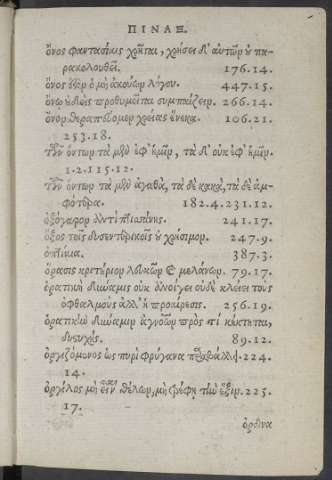 ΠΙΝΑΞ.
ὄνος φαντασίαις χρῆται, χρήσει δ' αὐτῶν οὐ πα-
ρακολουθεῖ. 176.14.
ὄνος ἐστὶν ὁ μὴ ἀκούων λόγου. 447.15.
ὄνῳ οὐδεὶς προθυμεῖται συμπαίζειν. 266.14.
ὄνον θεραπεύομεν χρείας ἕνεκα. 106.21.
253.18.
Τῶν ὄντων τὰ μὲν ἐφ' ἡμῖν, τὰ δ' οὐκ ἐφ' ἡμῖν.
1.2.115.12.
Τῶν ὄντων τὰ μὲν ἀγαθὰ, τὰ δὲ κακὰ, τὰ δὲ ἀμ-
φότερα. 182.4.231.12.
ὀξύγαρον ἀντὶ πτισάνης. 241.17.
ὄξος τοῖς δυσεντερικοῖς οὐ χρήσιμον. 247.9.
387.3.
ὅρασις κριτήριον λευκῶν καὶ μελάνων. 79.17.
ὁρατικὴ δύναμις οὐκ ἀνοίγει οὐδὲ κλείει τοὺς
ὀφθαλμοὺς ἀλλ' ἡ προαίρεσις. 256.19.
ὁρατικὴν δύναμιν ἀγνοῶν πρὸς τί κέκτηται,
δυστυχής. 89.12.
ὀργιζόμενος ὡς πυρὶ φρύγανα παραβάλλει. 224.
14.
ὀργίλος μὴ εἶναι θέλων, μὴ τρέφῃ τὴν ἕξιν. 225.
17.